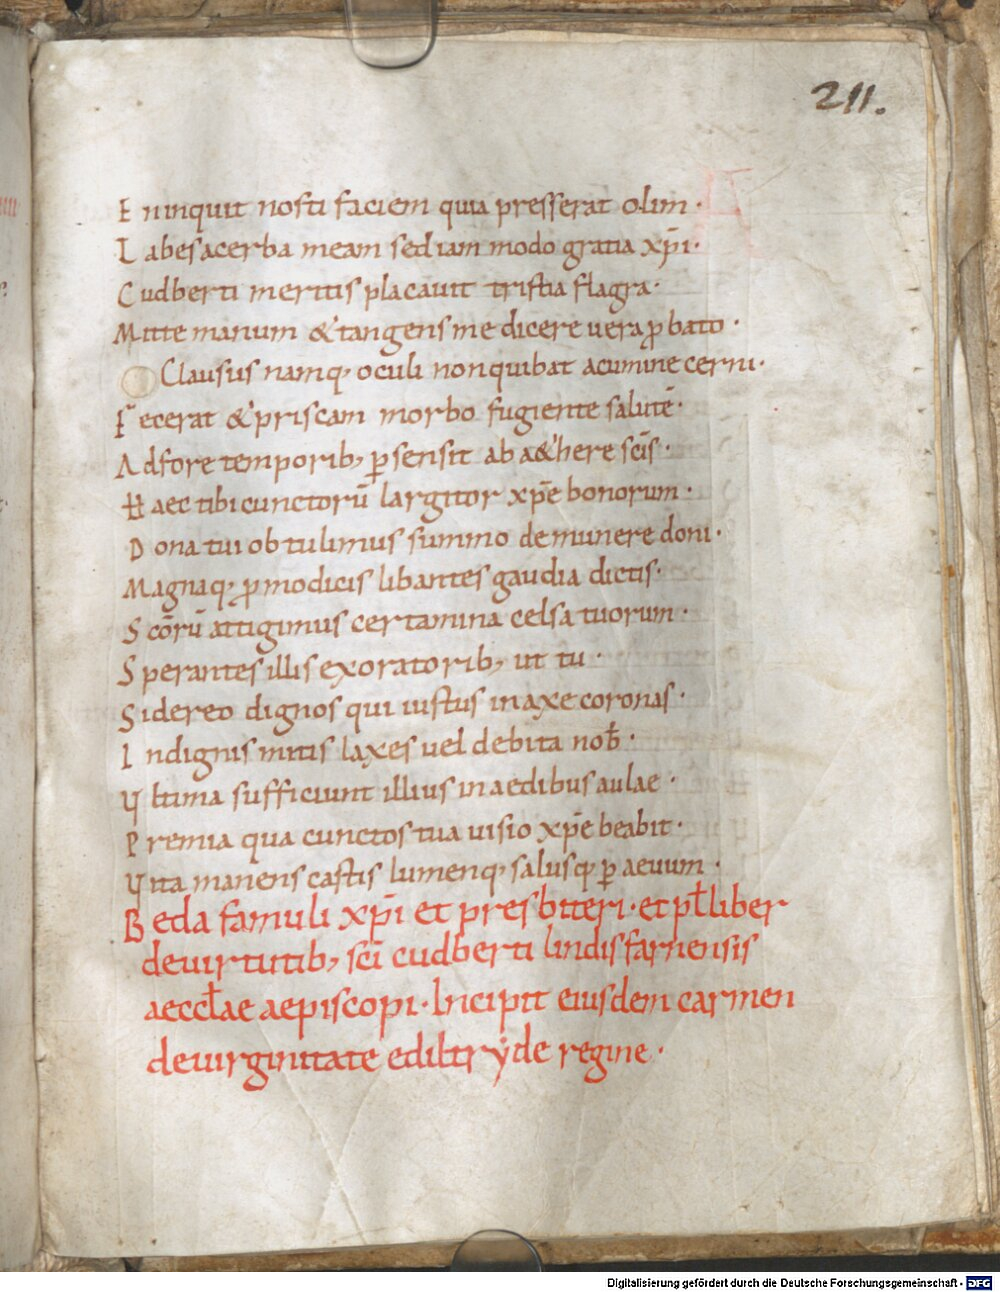 211.
E ninquit nosti faciem quia presserat olim ·
L abes acerba meam sed iam modo gratia xp̄i ·
C udberti meritis placauit tristia flagra ·
M itte manum & tangens me dicere uera ꝓbato ·
Clausus namq, oculi non quibat acumine cerni ·
F ecerat & priscam morbo fugiente salutē ·
A dfore temporib, p̱sensit ab aethere sc̄is ·
H aec tibi cunctorū largitor xp̄e bonorum ·
D ona tui obtulimus summo de munere doni ·
M agnaq, ꝓ modicis libantes gaudia dictis ·
S cōrū attigimus certamina celsa tuorum ·
S perantes illis exoratorib, ut tu ·
S idereo dignos qui iustus in axe coronas ·
I ndignis mitis laxes uel debita nob̄ ·
V ltima sufficiunt illius in aedibus aulae ·
P remia qua cunctos tua uisio xp̄e beabit ·
V ita manens castis lumenq, salusq, ꝑ aeuum ·
B eda famuli xp̄i et presbiteri · et pl̄ liber
de uirtutib, sc̄i cudberti lindisfarnensis
aeccl̄ae aepiscopi · Incipit eiusdem carmen
de uirginitate ediltryde regine ·
Digitalisierung gefördert durch die Deutsche Forschungsgemeinschaft · DFG